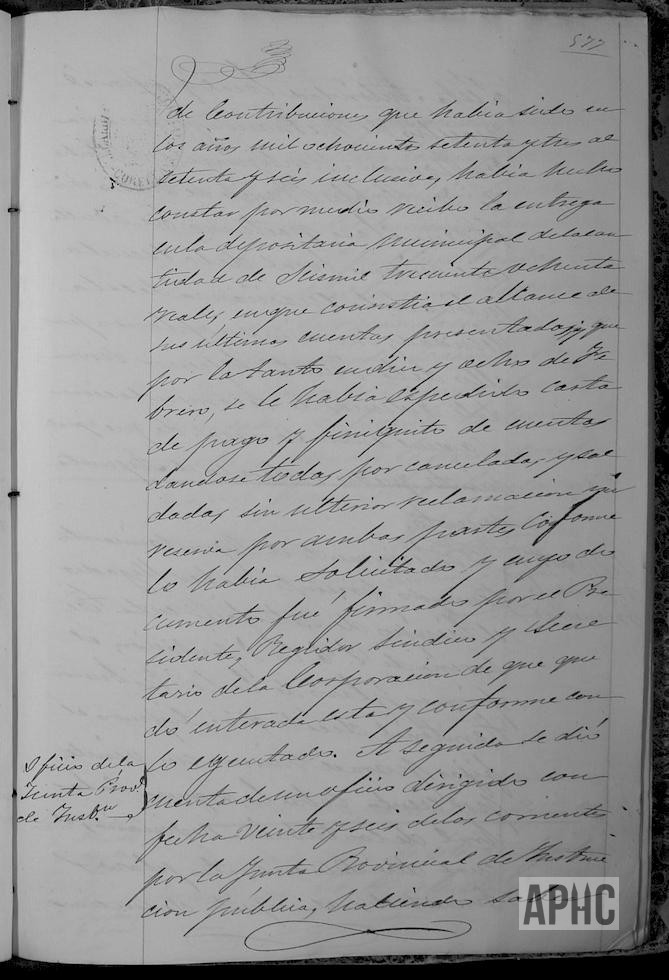 577
de Contribuciones que habia sido en
los años mil ochocientos setenta y tres al
setenta y seis inclusives, habia hecho
constar por medio recibo la entrega
en la depositaria municipal de la can
tidad de Seismil trescientos ochenta
reales, en que consistia el alcance de
sus ultimas cuentas presentadas, y que
por lo tanto en diez y ocho de Fe
brero, se le habia espedido carta
de pago y finiquito de cuentas
dandose todas por canceladas y sal
dadas sin ulterior reclamacion ni
reserva por ambas partes conforme
lo habia solicitado y cuyo do
cumento fué firmado por el Pre
sidente, Regidor Sindico y Secre
tario de la Corporacion de que que
dó enterada esta y conforme con
lo egecutado. A seguida se dió
cuenta de un oficio dirigido con
fecha veinte y seis de los corrientes
por la Junta Provincial de Instruc
cion pública, haciendo
Oficio de la
Junta Prov.l
de Inst.on
APHC